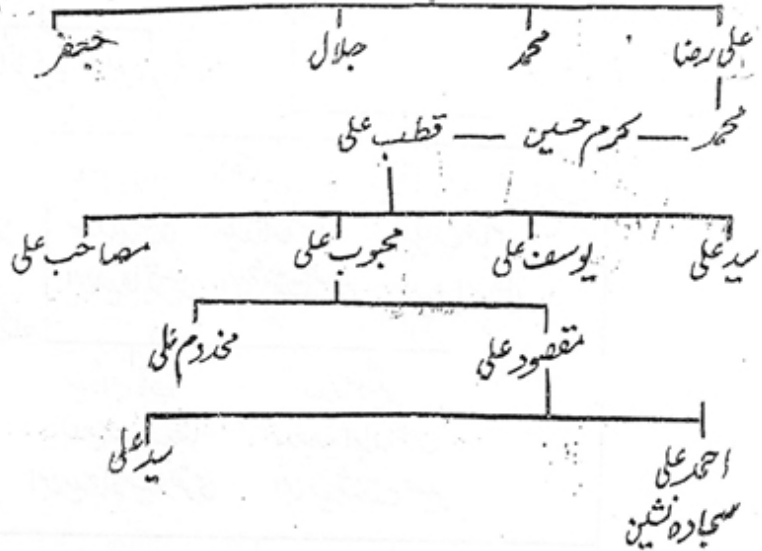 علی رضا محمد جلال جعفر
محمد — کرم حسین — قطب علی
سید علی یوسف علی محبوب علی مصاحب علی
مقصود علی مخدوم علی
احمد علی سید علی
سجادہ نشین